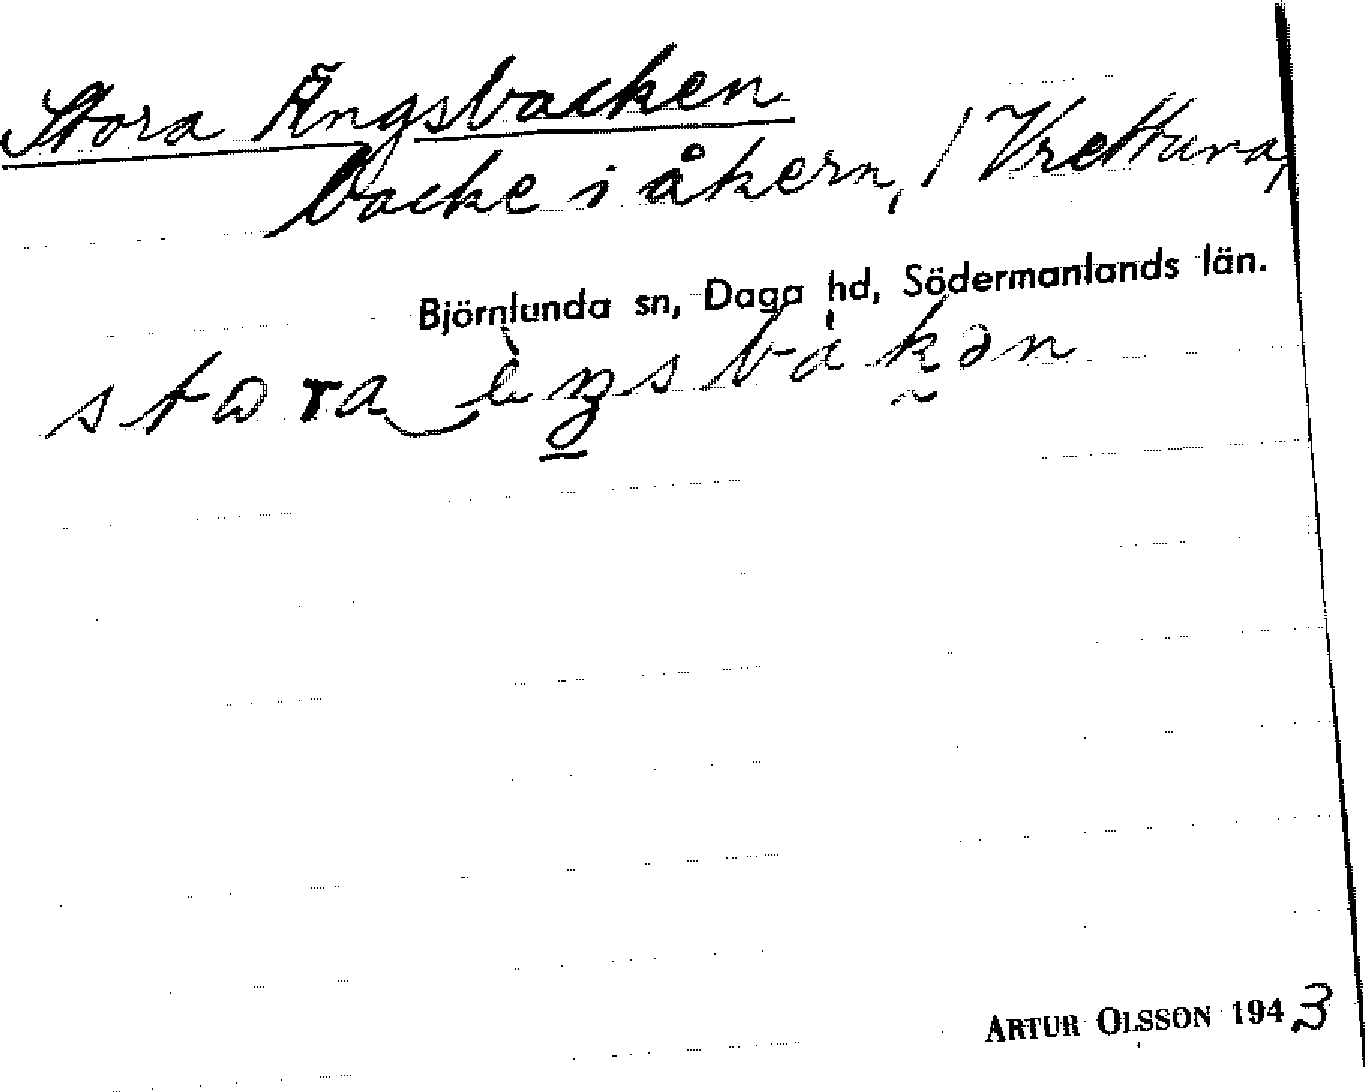 Stora Ängsbacken
backe i åkern, / Vrettuna,
Björnlunda sn, Daga hd, Södermanlands län.
ARTUR OLSSON 1943